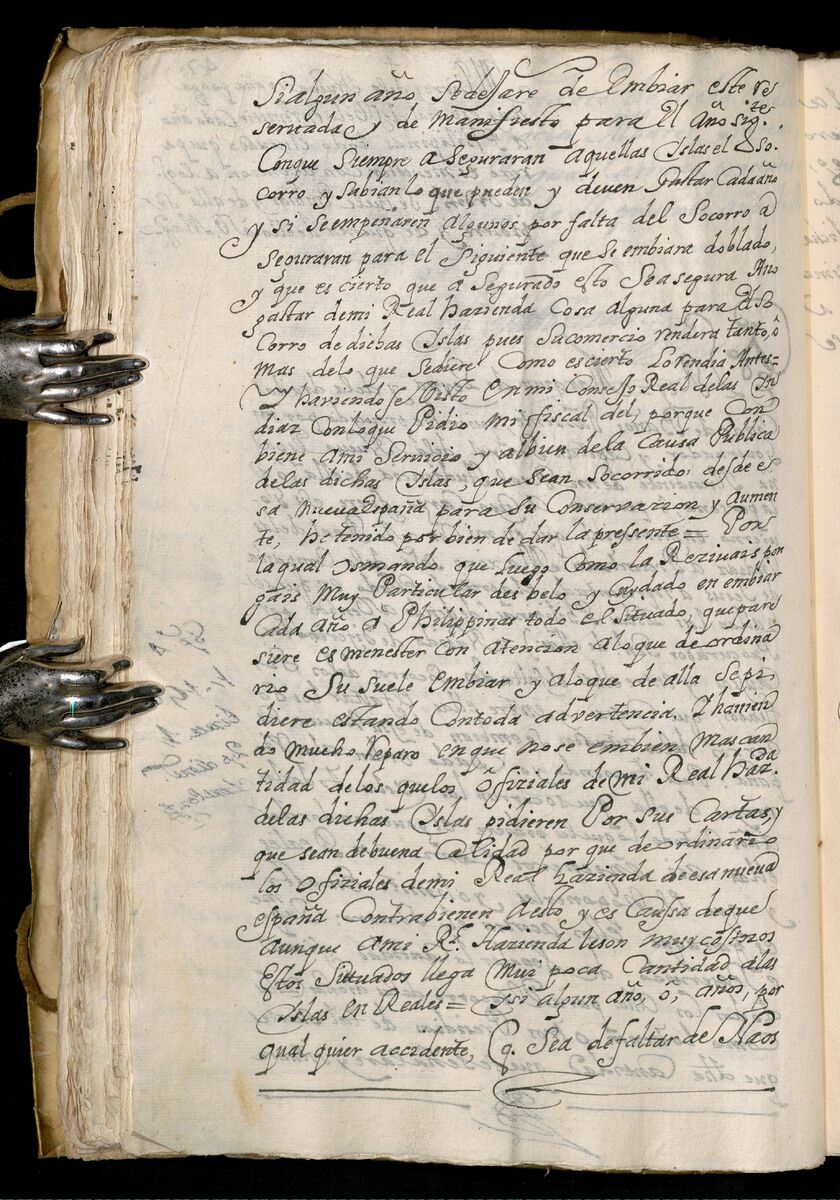 Si algun año se dejare de Embiar este re
servada y de Manifiesto para El año sig.te
Conque siempre aseguraran aquellas Islas el So-
corro y sabian lo que pueden y deven Gastar Cada año
y si se empeñaren algunos por falta del Socorro a
seguraran para el Siguiente que se embiara doblado,
y que es cierto que asegurado esto se asegura Ano
gastar de mi Real hazienda Cosa alguna para El So
Corro de dichas Islas pues su comercio rendera tanto, ò
Mas de lo que se diere Como es cierto Lo rendia Antes =
Y haviendose Visto en mi Consejo Real de las In
diaz Con lo que Pidio mi fiscal del, porque Con
biene a mi Servicio y al bien de la Causa Publica
de las dichas Islas, que sean Socorrido desde e
sa nueva España para su Conservazion y aumen
te, he tenido por bien de dar la pressente = Por
la qual os mando que luego Como la Rezivais pon
gais Muy Particular desbelo y Cuydado en embiar
Cada año a Philippinas todo el Situado, que pare
siere es menester con atencion a lo que de ordina
rio Su suele embiar y a lo que de alla se pi
diere estando Con toda advertencia. Y havien
do mucho reparo en que no se embien Mas can
tidad de los que los Ofiziales de mi Real haz.da
de las dichas Islas pidieren Por sus Cartas, y
que sean de buena Calidad por que de ordinario
los Ofiziales de mi Real hazienda de esa nueva
españa Contrabienen a esto, y es Caussa de que
aunque a mi R.l Hazienda le son muy costosos
Estos Situados llega mui poca Cantidad a las
Islas en Reales = Y si algun año, ò, años, por
qual quier accidente, q. Sea de faltar de Naos